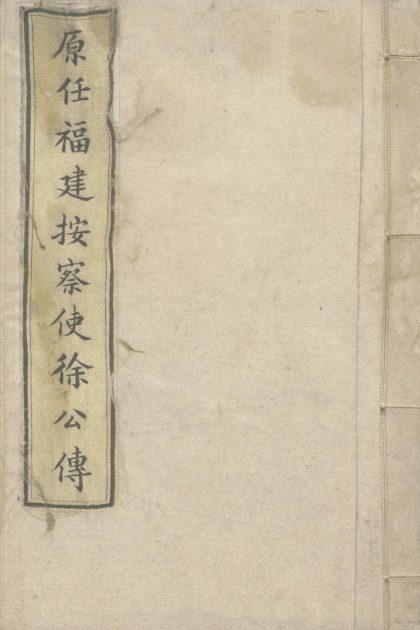 原任福建按察使徐公傳